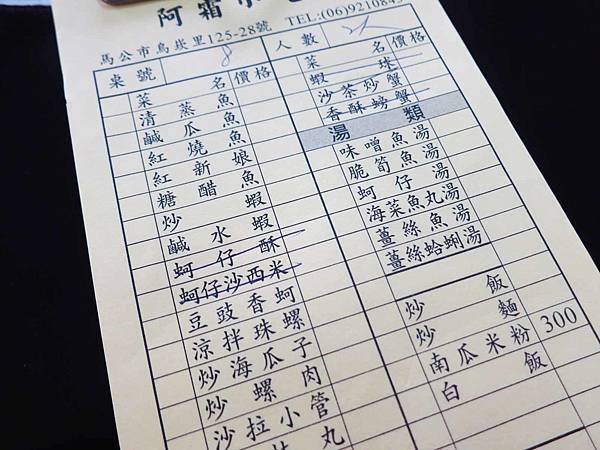 阿霜
馬公市烏崁里125-28號 TEL:(06)9210843
桌號 8 人數
菜名 價格
清蒸魚
鹹瓜魚
紅燒魚
紅新娘
糖醋魚
炒蝦
鹹水蝦
蚵仔酥
蚵仔沙西米
豆豉香蚵
涼拌珠螺
炒海瓜子
炒螺肉
沙拉小管
丸
菜名 價格
蝦球
沙茶炒蟹
香酥螃蟹
湯類
味噌魚湯
脆筍魚湯
蚵仔湯
海菜魚丸湯
薑絲魚湯
薑絲蛤蜊湯
炒飯
炒麵
南瓜米粉 300
白飯